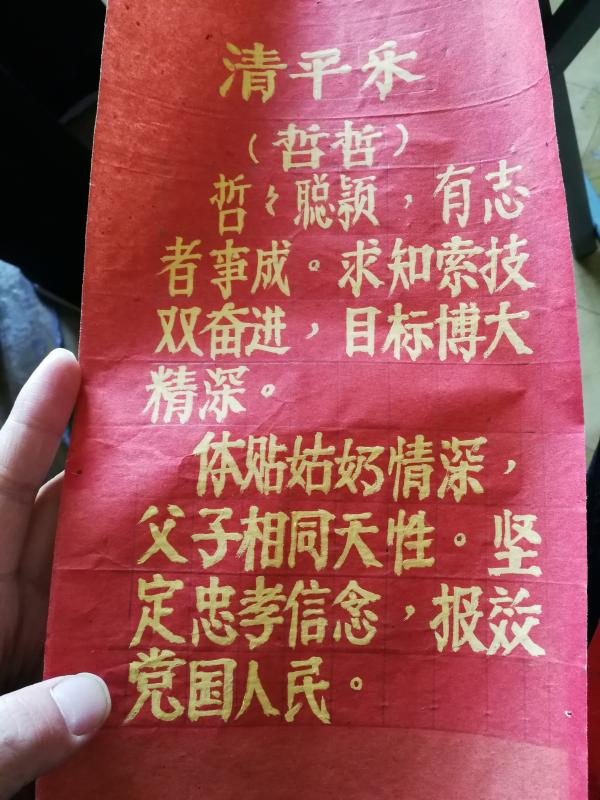 清平乐
（哲哲）
哲々聪颖，有志
者事成。求知索技
双奋进，目标博大
精深。
体贴姑奶情深，
父子相同天性。坚
定忠孝信念，报效
党国人民。